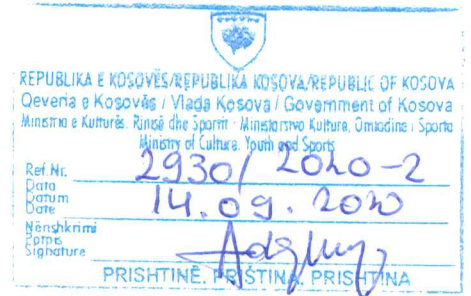 REPUBLIKA E KOSOVËS/REPUBLIKA KOSOVA/REPUBLIC OF KOSOVA
Qeveria e Kosovës / Vlada Kosova / Government of Kosova
Ministria e Kulturës, Rinisë dhe Sporrit - Ministarstvo Kulture, Omladine i Sporta
Ministry of Culture, Youth and Sports
Ref.Nr. 2930/2020-2
Data
Datum
Date 14.09.2020
Nënshkrimi
Potpis
Signature
PRISHTINË, PRIŠTINA, PRISHTINA